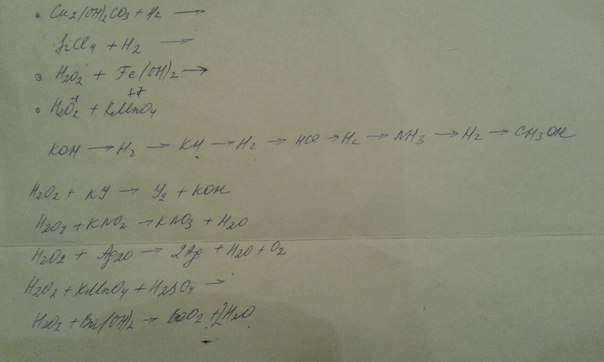 Cu2(OH)2CO3 + H2 →
+ H2 →
H2O2 + Fe(OH)2 →
H2O2 + KMnO4
KOH → H2 → KH → H2 → HCl → H2 → NH3 → H2 → CH3OH
H2O2 + KJ → J2 + KOH
H2O2 + KNO2 → KNO3 + H2O
H2O2 + Ag2O → 2Ag + H2O + O2
H2O2 + KMnO4 + H2SO4 →
H2O2 + Ba(OH)2 → BaO2 + 2H2O